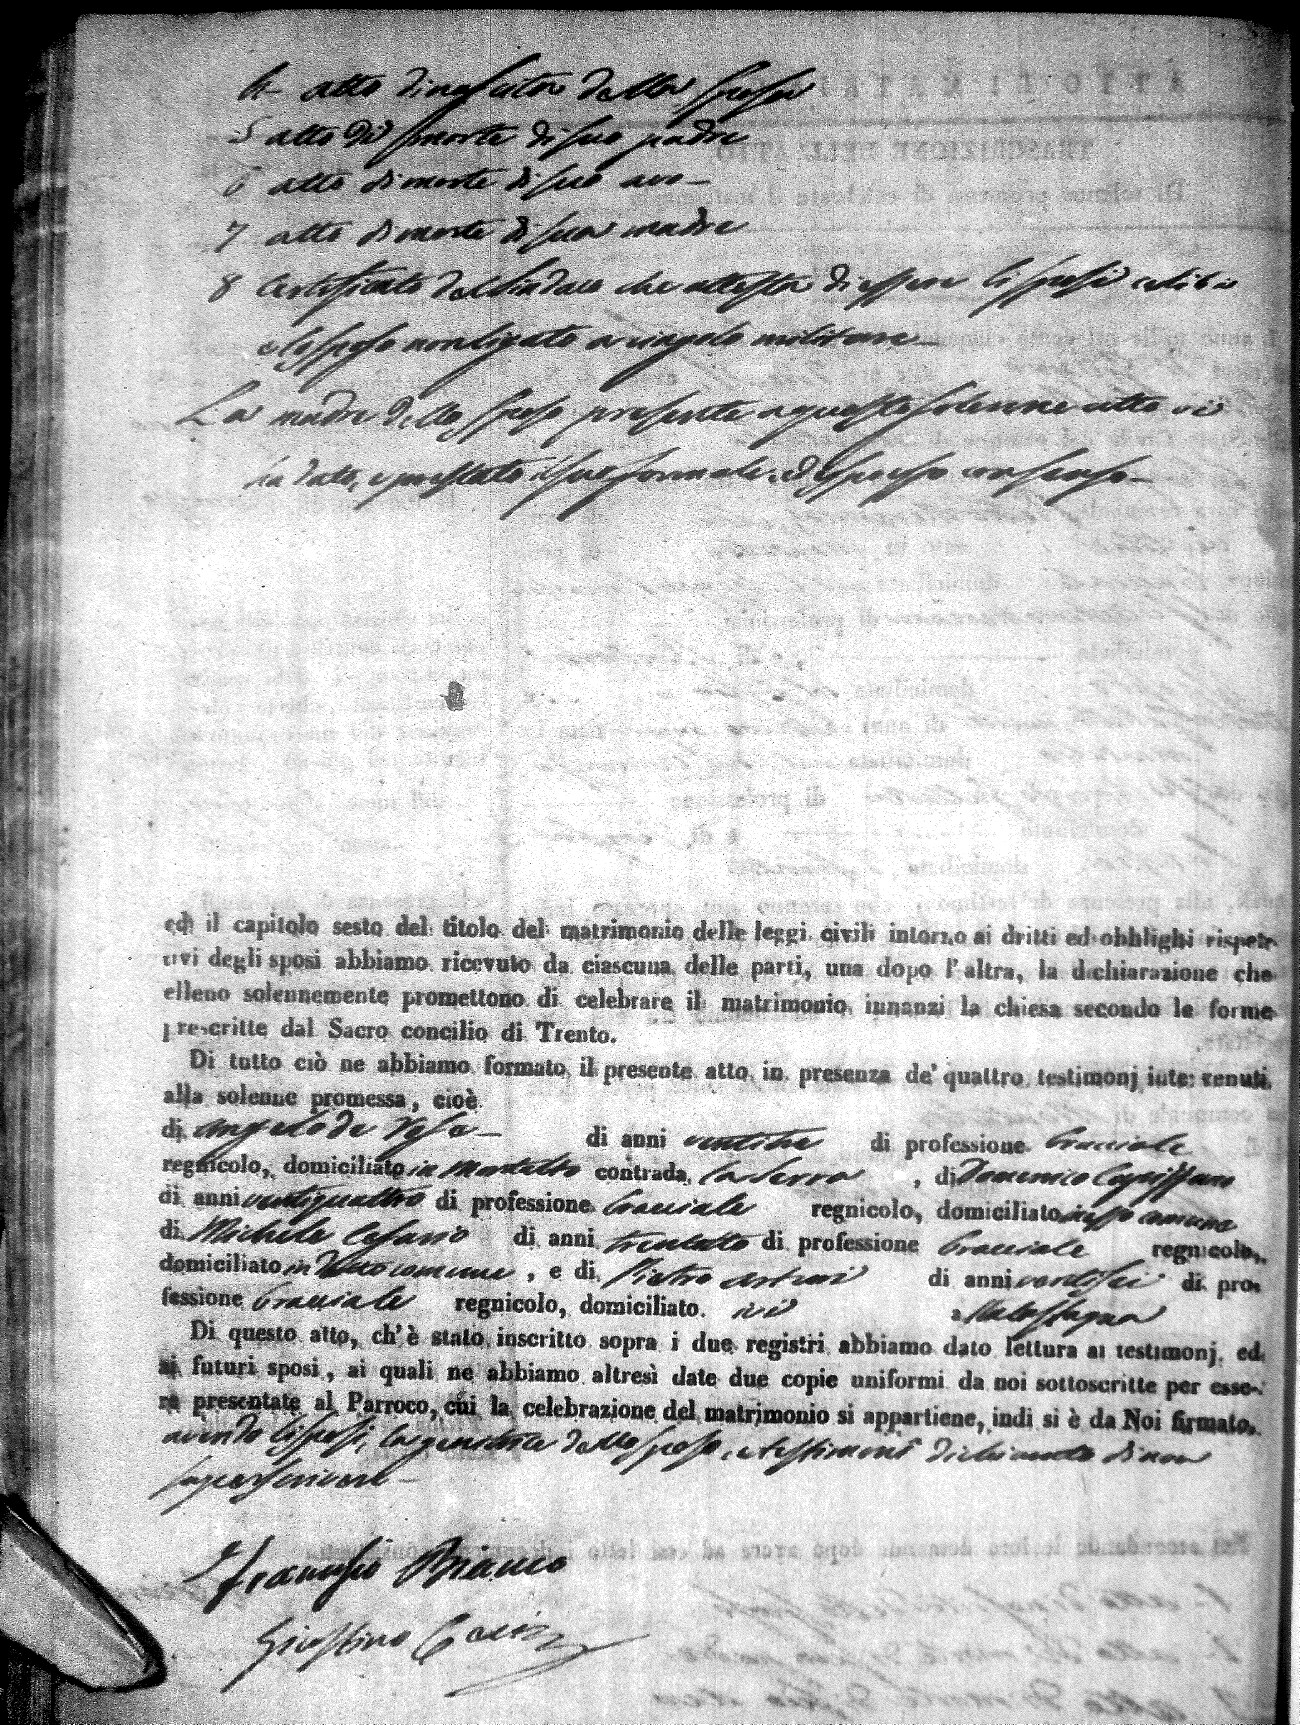 4 atto di nascita della sposa
5 atto di morte di suo padre
6 atto di morte di suo avo
7 atto di morte di sua madre
8 Certificato del Sindaco che attesta di essere li sposi celibi
e lo sposo non legato a vincolo militare
La madre dello sposo presente a questo solenne atto vi
ha dato, e prestato il suo formale, ed espresso consenso
ed il capitolo sesto del titolo del matrimonio delle leggi civili intorno ai dritti ed obblighi rispet-
tivi degli sposi abbiamo ricevuto da ciascuna delle parti, una dopo l'altra, la dichiarazione che
elleno solennemente promettono di celebrare il matrimonio innanzi la chiesa secondo le forme
prescritte dal Sacro concilio di Trento.
Di tutto ciò ne abbiamo formato il presente atto in presenza de' quattro testimonj intervenuti
alla solenne promessa, cioè
di Angelo de di anni ventitre di professione bracciale
regnicolo, domiciliato in contrada la Serra , di Domenico
di anni ventiquattro di professione bracciale regnicolo, domiciliato comune
di Michele Cesario di anni trentotto di professione bracciale regnicolo,
domiciliato in detto comune , e di Pietro di anni ventisei di pro-
fessione bracciale regnicolo, domiciliato ivi
Di questo atto, ch'è stato inscritto sopra i due registri abbiamo dato lettura ai testimonj, ed
ai futuri sposi, ai quali ne abbiamo altresì date due copie uniformi da noi sottoscritte per esse-
re presentate al Parroco, cui la celebrazione del matrimonio si appartiene, indi si è da Noi firmato,
avendo li sposi, la genitrice dello sposo, e testimoni dichiarato di non
saper scrivere
Francesco Bianco
Giustino